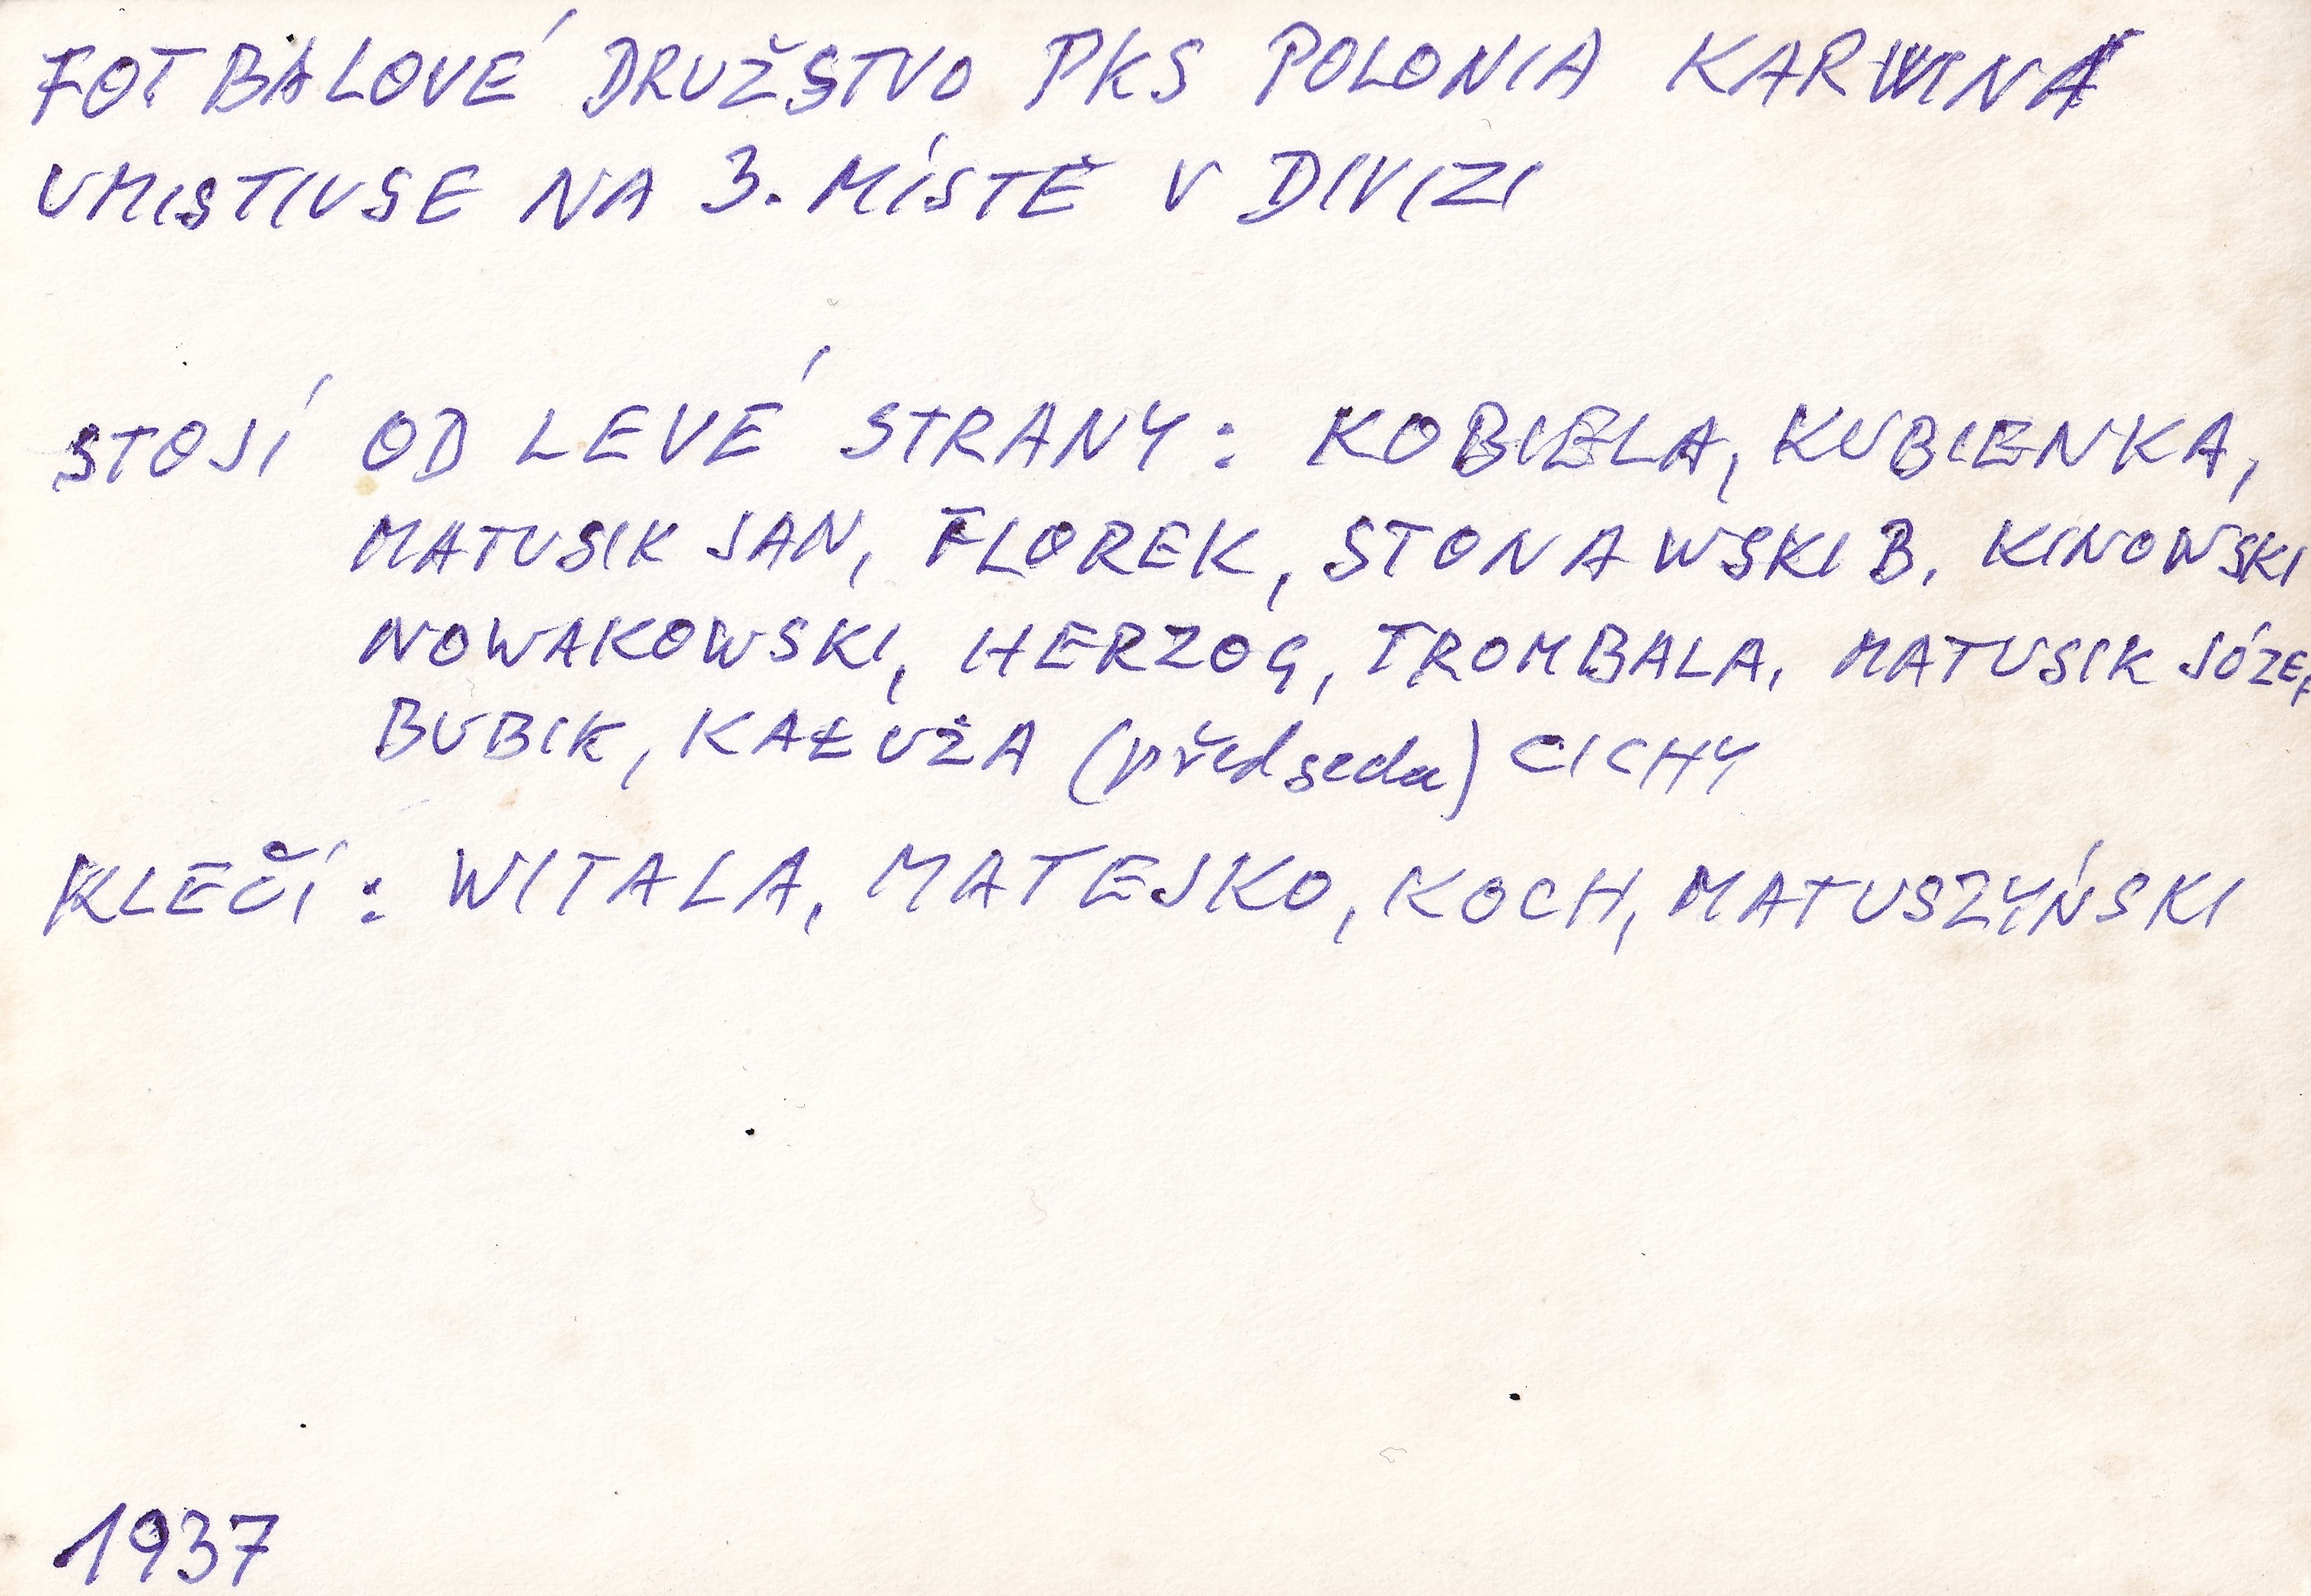 FOTBALOVÉ DRUŽSTVO PKS POLONIA KARWINA
UMISTIVSE NA 3. MÍSTĚ V DIVIZI
STOJÍ OD LEVÉ STRANY: KOBIELA, KUBIENKA,
MATUSIK JAN, FLOREK, STONAWSKI B. KINOWSKI
NOWAKOWSKI, HERZOG, TROMBALA, MATUSIK JÓZEF
BUBIK, KAŁUŻA (předseda) CICHY
KLEČÍ: WITALA, MATEJKO, KOCH, MATUSZYŃSKI
1937